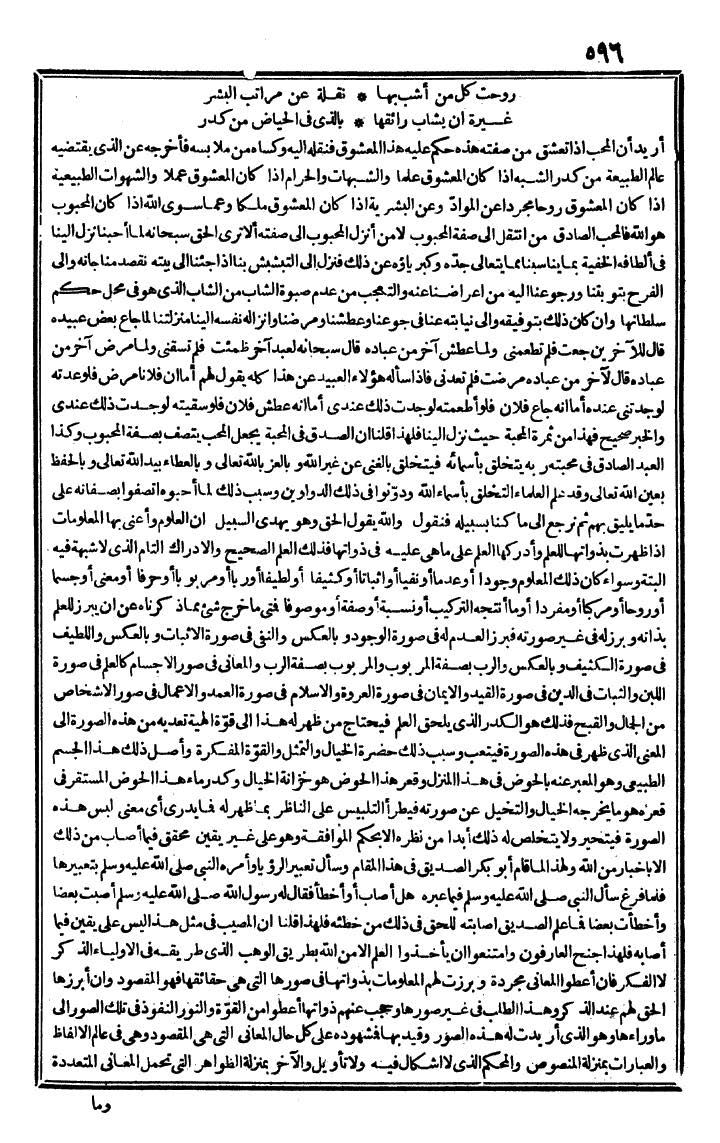 ٥٩٦
روحت كل من أشب بها * نقلة عن مراتب البشر
غيرة ان يشاب رائقها * بالذى فى الحياض من كدر
أريد أن المحب اذا تعشق من صفته هذه حكم عليه هذا المعشوق فنقله اليه وكساه من ملابسه فأخرجه عن الذى يقتضيه
عالم الطبيعة من كدر الشبه اذا كان المعشوق علما والشبهات والحرام اذا كان المعشوق عملا والشهوات الطبيعية
اذا كان المعشوق روحا مجردا عن المواد وعن البشرية اذا كان المعشوق ملكا وعما سوى الله اذا كان المحبوب
هو الله فالمحب الصادق من انتقل الى صفة المحبوب لا من أنزل المحبوب الى صفته ألا ترى الحق سبحانه لما أحبنا نزل الينا
فى ألطافه الخفية بما يناسبنا مما يتعالى جده وكبرياؤه عن ذلك فنزل الى التبشبش بنا اذا جئنا الى بيته نقصد مناجاته والى
الفرح بتوبتنا ورجوعنا اليه من اعراضنا عنه والتعجب من عدم صبوة الشاب من الشاب الذى هو فى محل حكم
سلطانها وان كان ذلك بتوفيقه والى نيابته عنا فى جوعنا وعطشنا ومرضنا وانزاله نفسه الينا منزلتنا لما جاع بعض عبيده
قال للآخرين جعت فلم تطعمنى ولما عطش آخر من عباده قال سبحانه لعبد آخر ظمئت فلم تسقنى ولما مرض آخر من
عباده قال لآخر من عباده مرضت فلم تعدنى فاذا سأله هؤلاء العبيد عن هذا كله يقول لهم أما ان فلانا مرض فلو عدته
لوجدتنى عنده أما انه جاع فلان فلو أطعمته لوجدت ذلك عندى أما انه عطش فلان فلو سقيته لوجدت ذلك عندى
والخبر صحيح فهذا من ثمرة المحبة حيث نزل الينا فلهذا قلنا ان الصدق فى المحبة يجعل المحب يتصف بصفة المحبوب وكذا
العبد الصادق فى محبته ربه يتخلق بأسمائه فيتخلق بالغنى عن غير الله وبالعز بالله تعالى وبالعطاء بيد الله تعالى وبالحفظ
بعين الله تعالى وقد علم العلماء التخلق بأسماء الله ودونوا فى ذلك الدواوين وسبب ذلك لما أحبوه اتصفوا بصفاته على
حد ما يليق بهم ثم نرجع الى ما كنا بسبيله فنقول والله يقول الحق وهو يهدى السبيل ان العلوم وأعنى بها المعلومات
اذا ظهرت بذواتها للعلم وأدركها العلم على ما هى عليه فى ذواتها فذلك العلم الصحيح والادراك التام الذى لا شبهة فيه
البتة وسواء كان ذلك المعلوم وجودا أو عدما أو نفيا أو اثباتا أو كثيفا أو لطيفا أو ربا أو مربوبا أو حرفا أو معنى أو جسما
أو روحا أو مركبا أو مفردا أو ما أنتجه التركيب أو نسبة أو صفة أو موصوفا فتى ما خرج شئ مما ذكرناه عن ان يبرز للعلم
بذاته وبرز له فى غير صورته فبرز العدم له فى صورة الوجود وبالعكس والنفى فى صورة الاثبات وبالعكس واللطيف
فى صورة الكثيف وبالعكس والرب بصفة المربوب والمربوب بصفة الرب والمعانى فى صور الاجسام كالعلم فى صورة
اللبن والثبات فى الدين فى صورة القيد والايمان فى صورة العروة والاسلام فى صورة العمد والاعمال فى صور الاشخاص
من الجمال والقبح فذلك هو الكدر الذى يلحق العلم فيحتاج من ظهر له هذا الى قوة الهية تعديه من هذه الصورة الى
المعنى الذى ظهر فى هذه الصورة فيتعب وسبب ذلك حضرة الخيال والتمثل والقوة المفكرة وأصل ذلك هذا الجسم
الطبيعى وهو المعبر عنه بالحوض فى هذا المنزل وقعر هذا الحوض هو خزانة الخيال وكدر ماء هذا الحوض المستقر فى
قعره هو ما يخرجه الخيال والتخيل عن صورته فيطرأ التلبيس على الناظر بما ظهر له فما يدرى أى معنى لبس هذه
الصورة فيتحير ولا يتخلص له ذلك أبدا من نظره الا بحكم الموافقة وهو على غير يقين محقق فيما أصاب من ذلك
الا باخبار من الله ولهذا لما قام أبو بكر الصديق فى هذا المقام وسأل تعبير الرؤيا وأمره النبى صلى الله عليه وسلم بتعبيرها
فلما فرغ سأل النبى صلى الله عليه وسلم فيما عبره هل أصاب أو أخطأ فقال له رسول الله صلى الله عليه وسلم أصبت بعضا
وأخطأت بعضا فما علم الصديق اصابته للحق فى ذلك من خطئه فلهذا قلنا ان المصيب فى مثل هذا ليس على يقين فيما
أصابه فلهذا جنح العارفون وامتنعوا ان يأخذوا العلم الا من الله بطريق الوهب الذى طريقه فى الاولياء الذكر
لا الفكر فان أعطوا المعانى مجردة وبرزت لهم المعلومات بذواتها فى صورها التى هى حقائقها فهو المقصود وان أبرزها
الحق لهم عند الذكر وهذا الطلب فى غير صورها وحجب عنهم ذواتها أعطوا من القوة والنور النفوذ فى تلك الصور الى
ما وراءها وهو الذى أريدت له هذه الصور وقيد بها فشهوده على كل حال المعانى التى هى المقصود وهى فى عالم الالفاظ
والعبارات بمنزلة المنصوص والمحكم الذى لا اشكال فيه ولا تأويل والآخر بمنزلة الظواهر التى تحمل المعانى المتعددة
وما